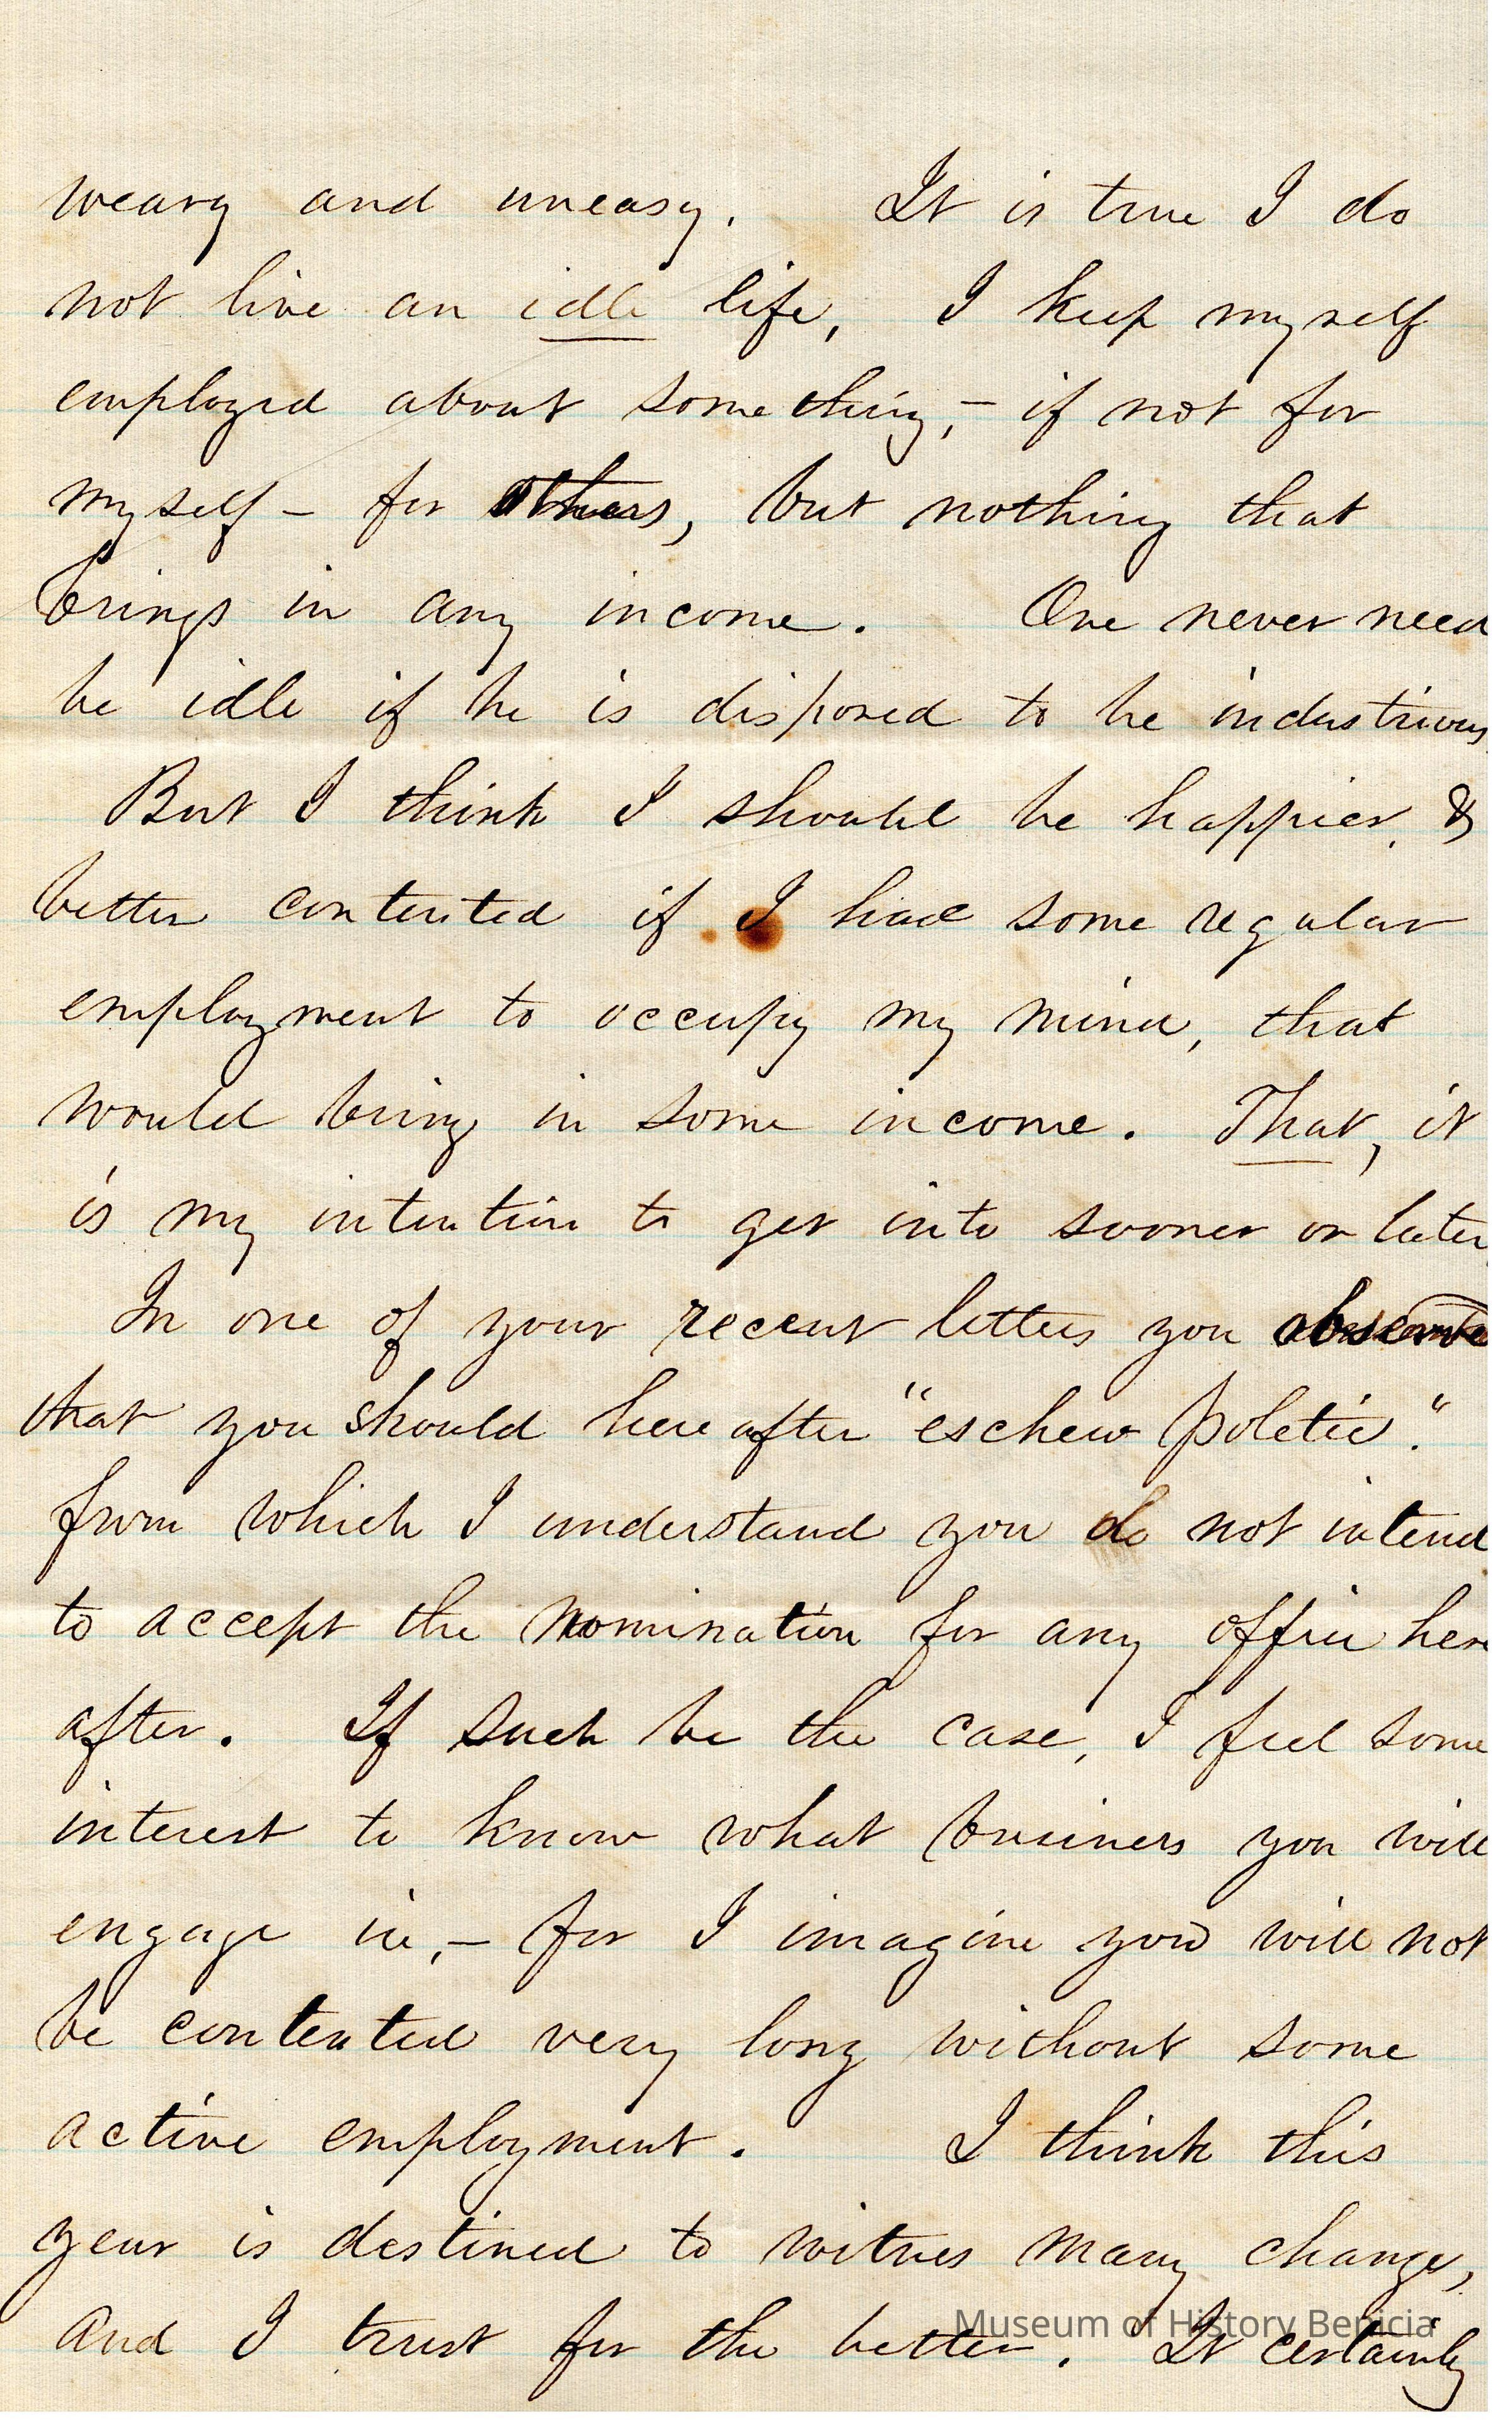 weary and uneasy. It is true I do
not live an idle life, I keep myself
employed about something,- if not for
myself - for others, but nothing that
brings in any income. One never need
be idle if he is disposed to be industrious
But I think I should be happier, &
better contented if I had some regular
employment to occupy my mind, that
would bring in some income. That, it
is my intention to get into sooner or later,
In one of your recent letters you observe
that you should hereafter "eschew politics".
from which I understand you do not intend
to accept the nomination for any office here
after. If such be the case, I feel some
interest to know what business you will
engage in,- for I imagine you will not
be contented very long without some
active employment. I think this
year is destined to witness many changes,
and I trust for the better. It certainly
Museum of History Benicia